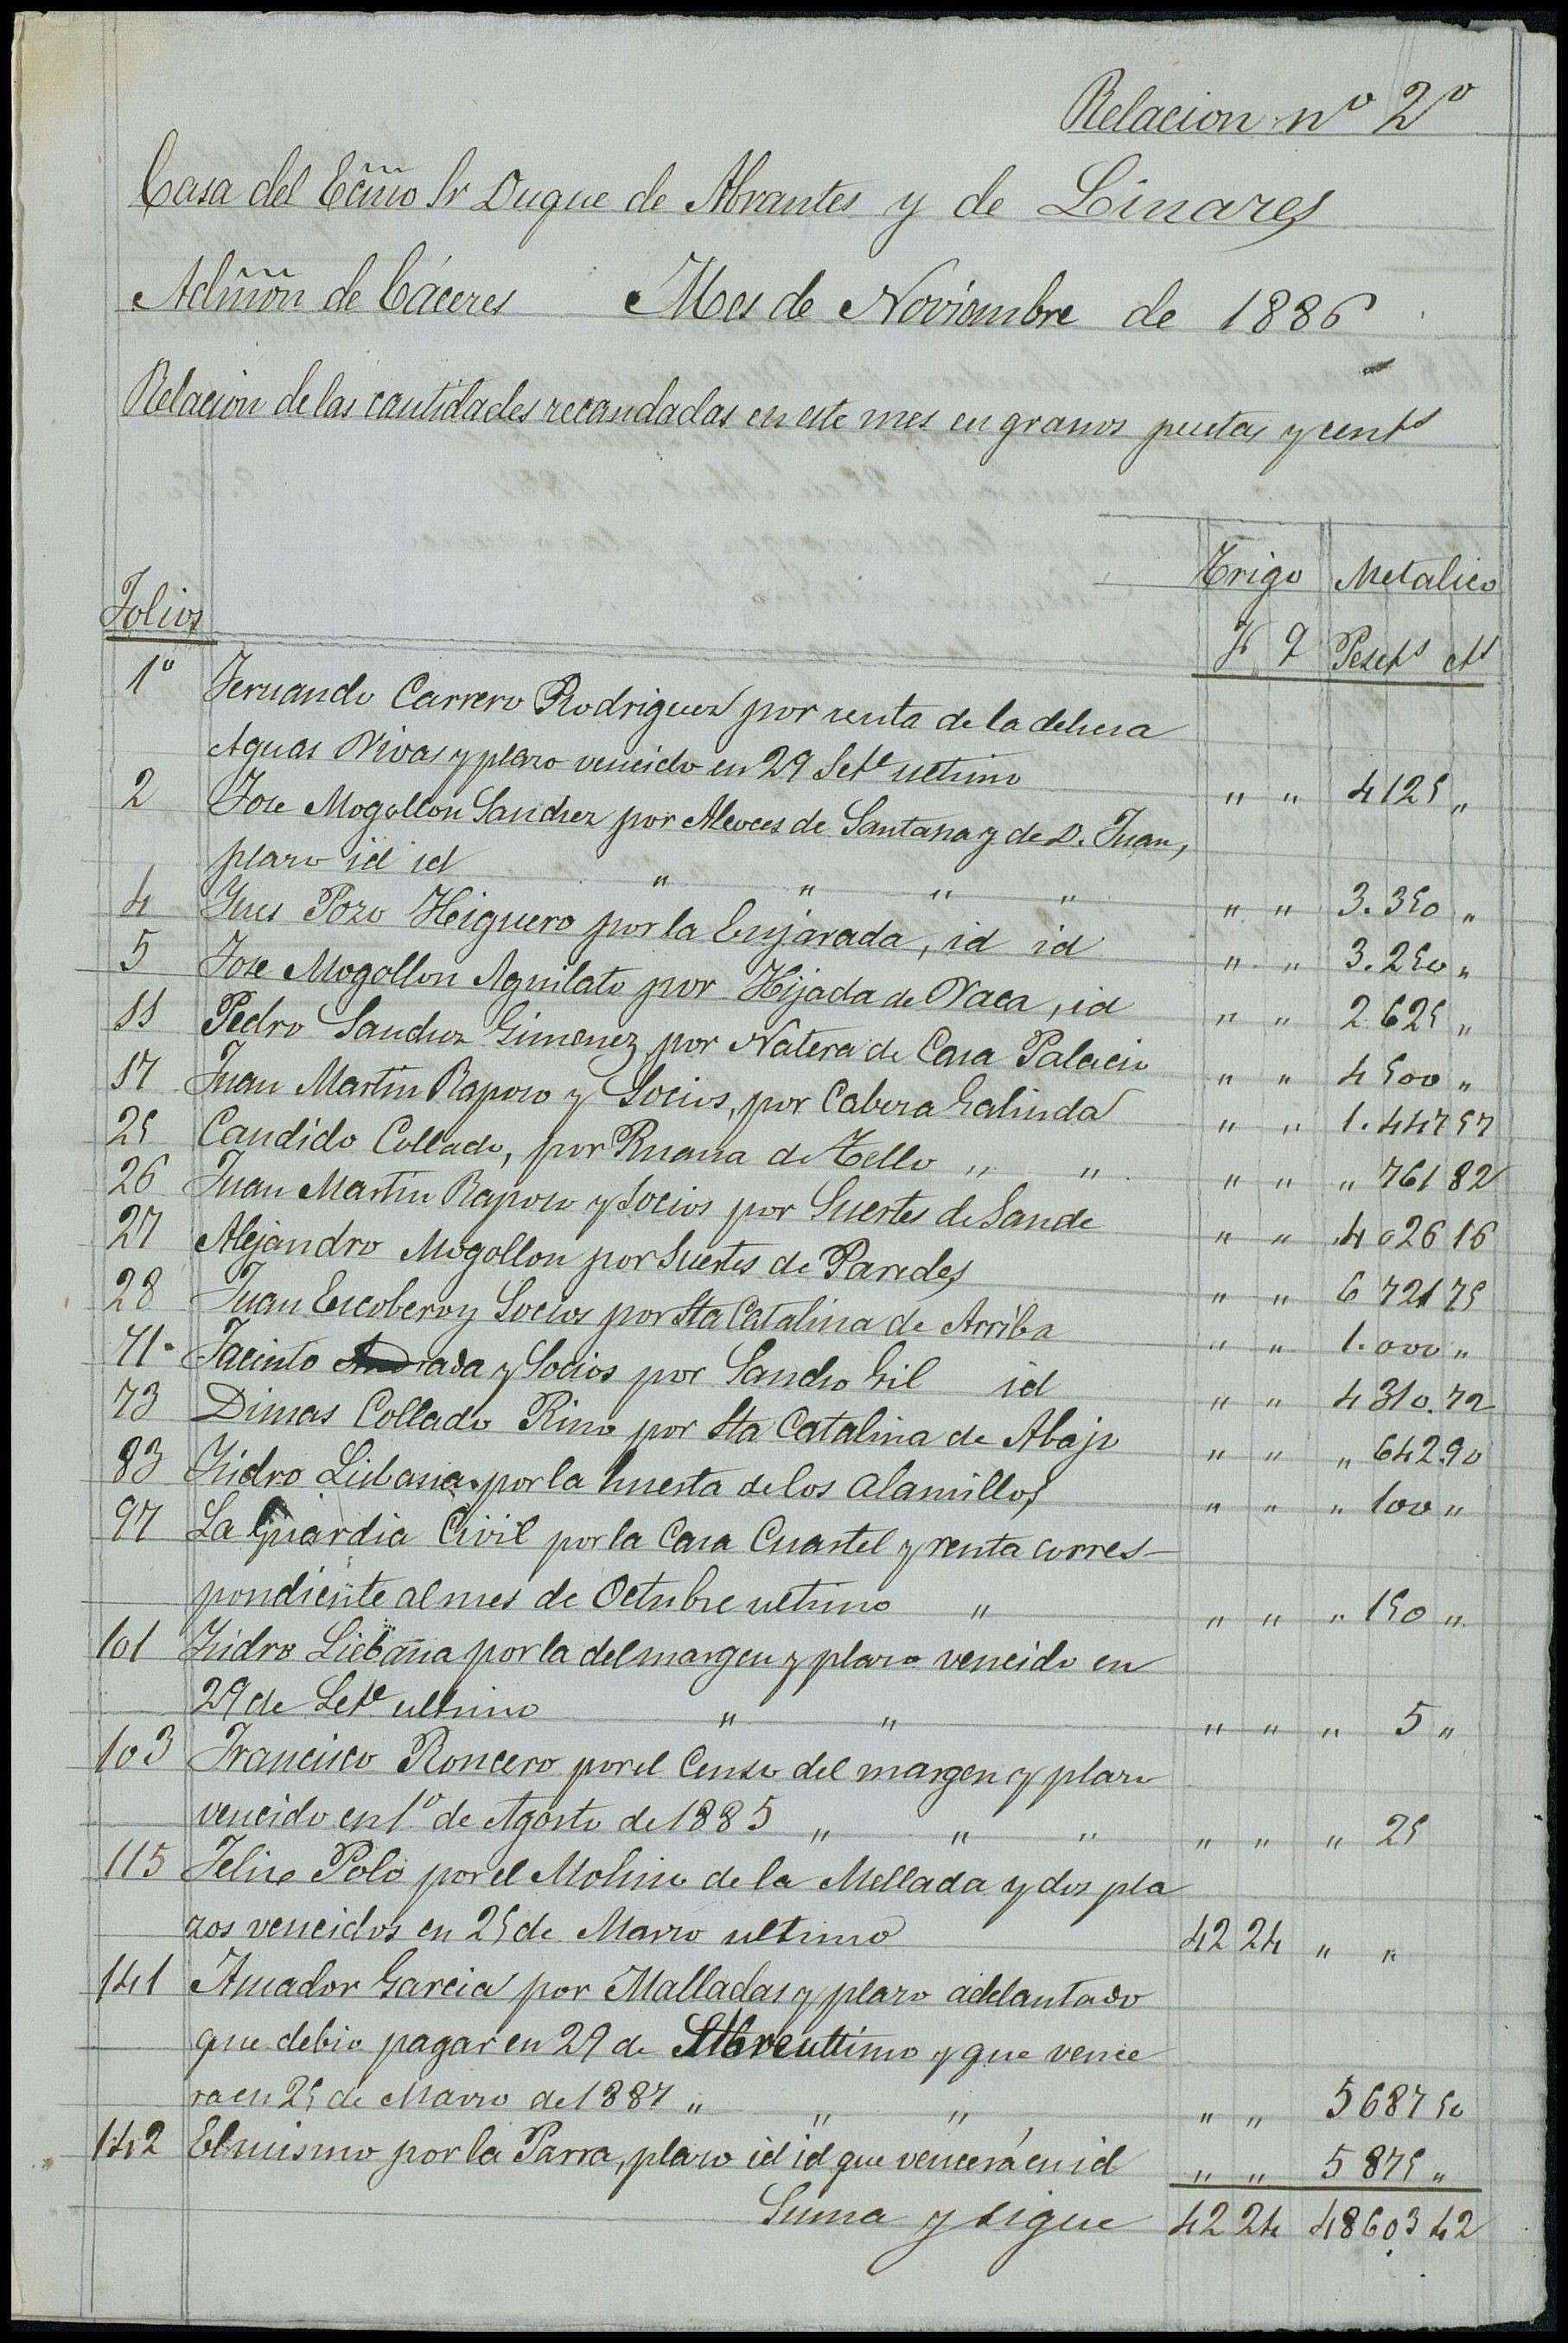 Relacion nº 2º
Casa del Ecmo Sr Duque de Abrantes y de Linares
Admon de Cáceres Mes de Noviembre de 1886
Relacion de las cantidades recaudadas en este mes en granos pesetas y cents
Trigo Metalico
Folios
Pesets cts
1º Fernando Carrero Rodriguez por renta de la dehesa
Aguas Vivas y plazo vencido en 29 Sete ultimo " " 4125 "
2 Jose Mogollon Sanchez por Alcoces de Santana y de D. Juan,
plazo id id " " " " " " 3.350 "
4 Ynes Pozo Higuero por la Enjarada, id id " " 3.250 "
5 Jose Mogollon Aguilato por Hijada de Vaca, id " " 2625 "
11 Pedro Sanchez Gimenez por Natera de Casa Palacio " " 4500 "
17 Juan Martin Raposo y Socios, por Cabeza Galinda " " 1.447 57
25 Candido Collado, por Ruana de Tello " " " " " 761 82
26 Juan Martin Raposo y Socios por Suertes de Sande " " 4026 16
27 Alejandro Mogollon por Suertes de Paredes " " 6721 75
28 Juan Escobero y Socios por Sta Catalina de Arriba " " 1.000 "
71 Jacinto Andrada y Socios por Sancho Gil id " " 4310.72
73 Dimas Collado Rino por Sta Catalina de Abajo " " " 642.90
83 Ysidro Liebana por la huerta de los Alamillos " " " 100 "
97 La Guardia Civil por la Casa Cuartel y renta corres-
pondiente al mes de Octubre ultimo " " " " 150 "
101 Ysidro Liebana por la del margen y plazo vencido en
29 de Sete ultimo " " " " " 5 "
103 Francisco Roncero por el Censo del margen y plazo
vencido en 1º de Agosto de 1885 " " " " " " 25
115 Felipe Polo por el Molino de la Mellada y dos pla
zos vencidos en 25 de Marzo ultimo 42 24 " "
141 Amador Garcia por Malladas y plazo adelantado
que debio pagar en 29 de Stbre ultimo y que vence
ra en 25 de Marzo de 1887 " " " " " 5687 50
142 El mismo por la Parra, plazo id id que vencerá en id " " 5875 "
Suma y sigue 42 24 48603 42